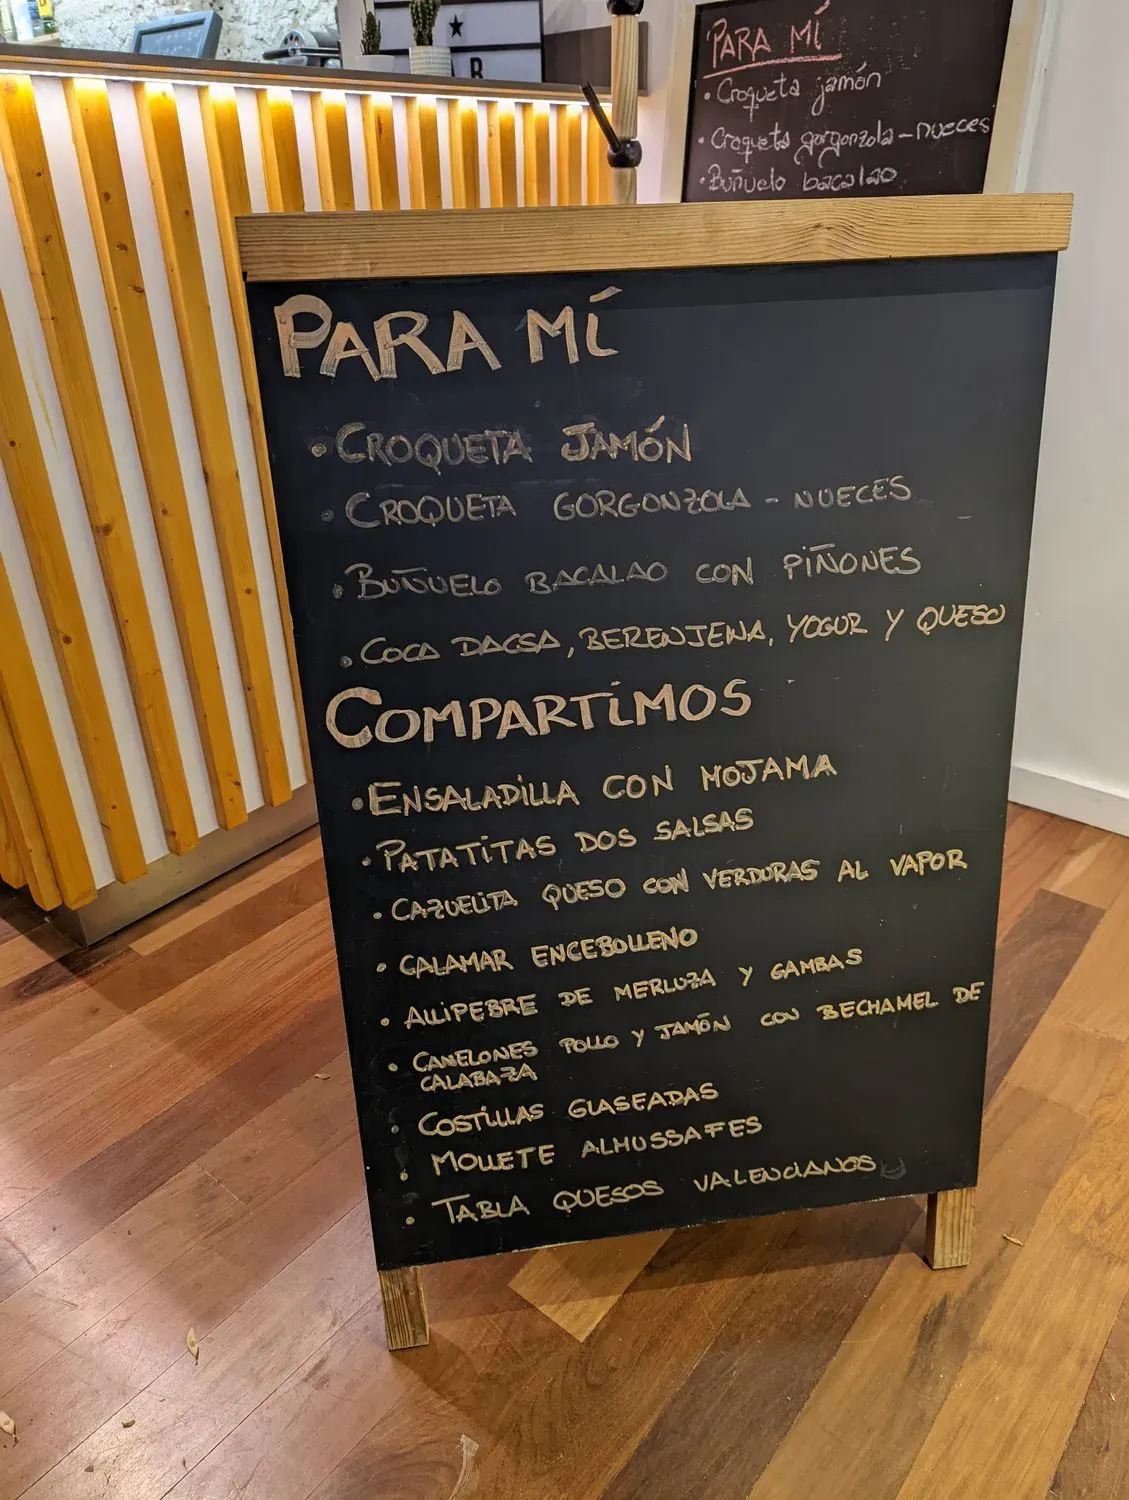 R
PARA MÍ
• Croqueta jamón
• Croqueta gorgonzola – nueces
• Buñuelo bacalao
PARA MÍ
• CROQUETA JAMÓN
• CROQUETA GORGONZOLA - NUECES
• BUÑUELO BACALAO CON PIÑONES
• COCA DACSA, BERENJENA, YOGUR Y QUESO
COMPARTIMOS
• ENSALADILLA CON MOJAMA
• PATATITAS DOS SALSAS
• CAZUELITA QUESO CON VERDURAS AL VAPOR
• CALAMAR ENCEBOLLENO
• ALLIPEBRE DE MERLUZA Y GAMBAS
• CANELONES POLLO Y JAMÓN CON BECHAMEL DE
CALABAZA
• COSTILLAS GLASEADAS
• MOLLETE ALMUSSAFES
• TABLA QUESOS VALENCIANOS